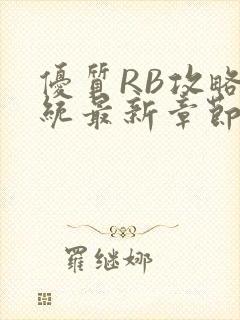 優質RB攻略
統最新章節
羅继娜